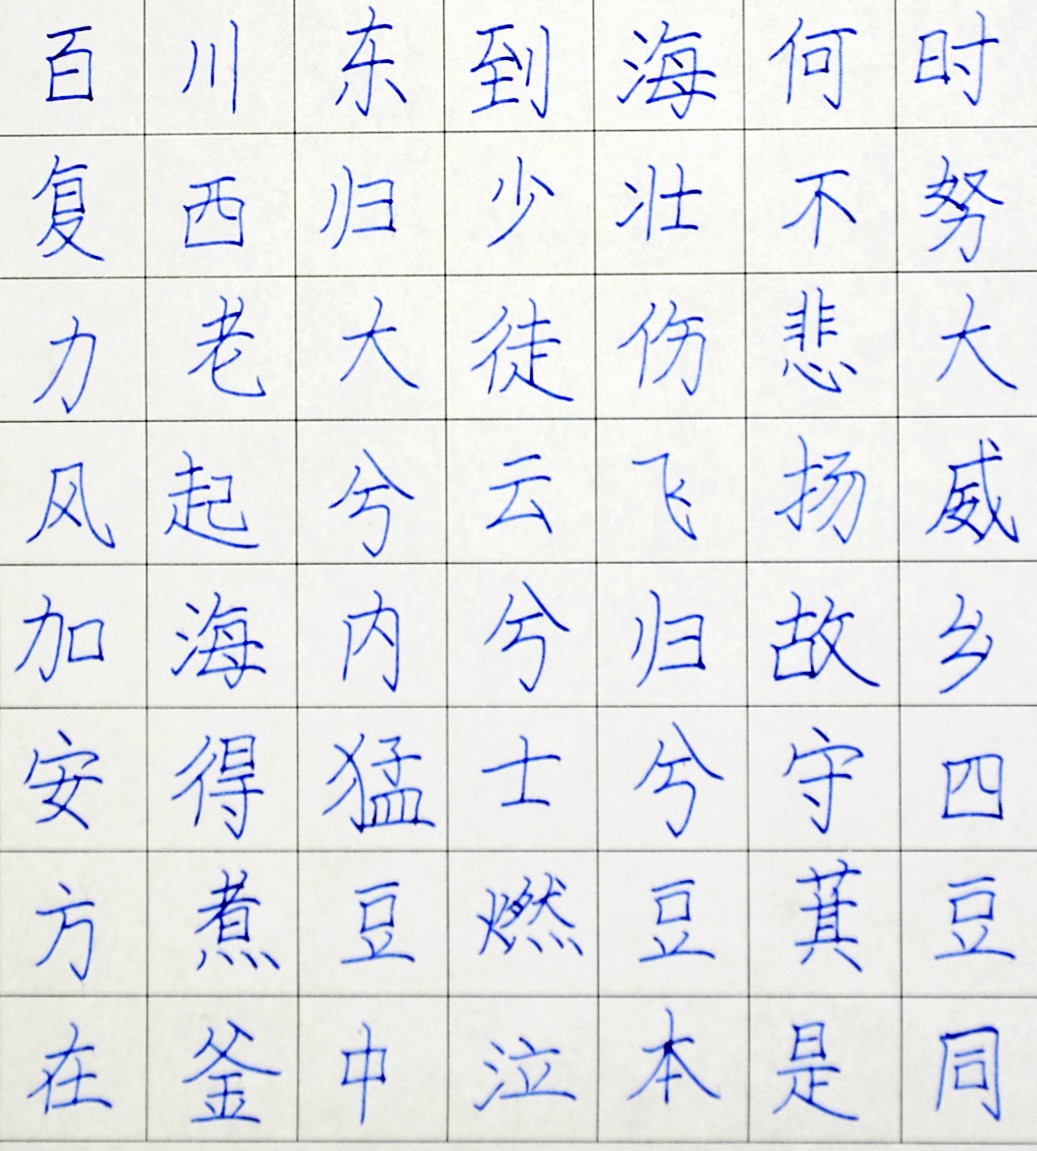 百川东到海何时
复西归少壮不努
力老大徒伤悲大
风起兮云飞扬威
加海内兮归故乡
安得猛士兮守四
方煮豆燃豆萁豆
在釜中泣本是同